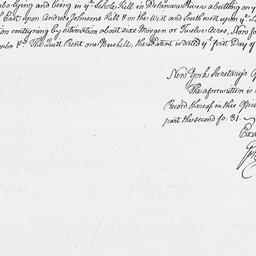 lying and being in ye Schole Kill in Delaware River abutting on ye
East upon Andries Johnsons Kill & on the West and Southwest upon ye
containing by estimation about six Morgen or Twelve Acres, Now
The Quit Rent one Bushell, the Patent is dated ye first Day of
New York Secretary's
The aforewritten is
Record thereof in this Office
part the second fo: 31.